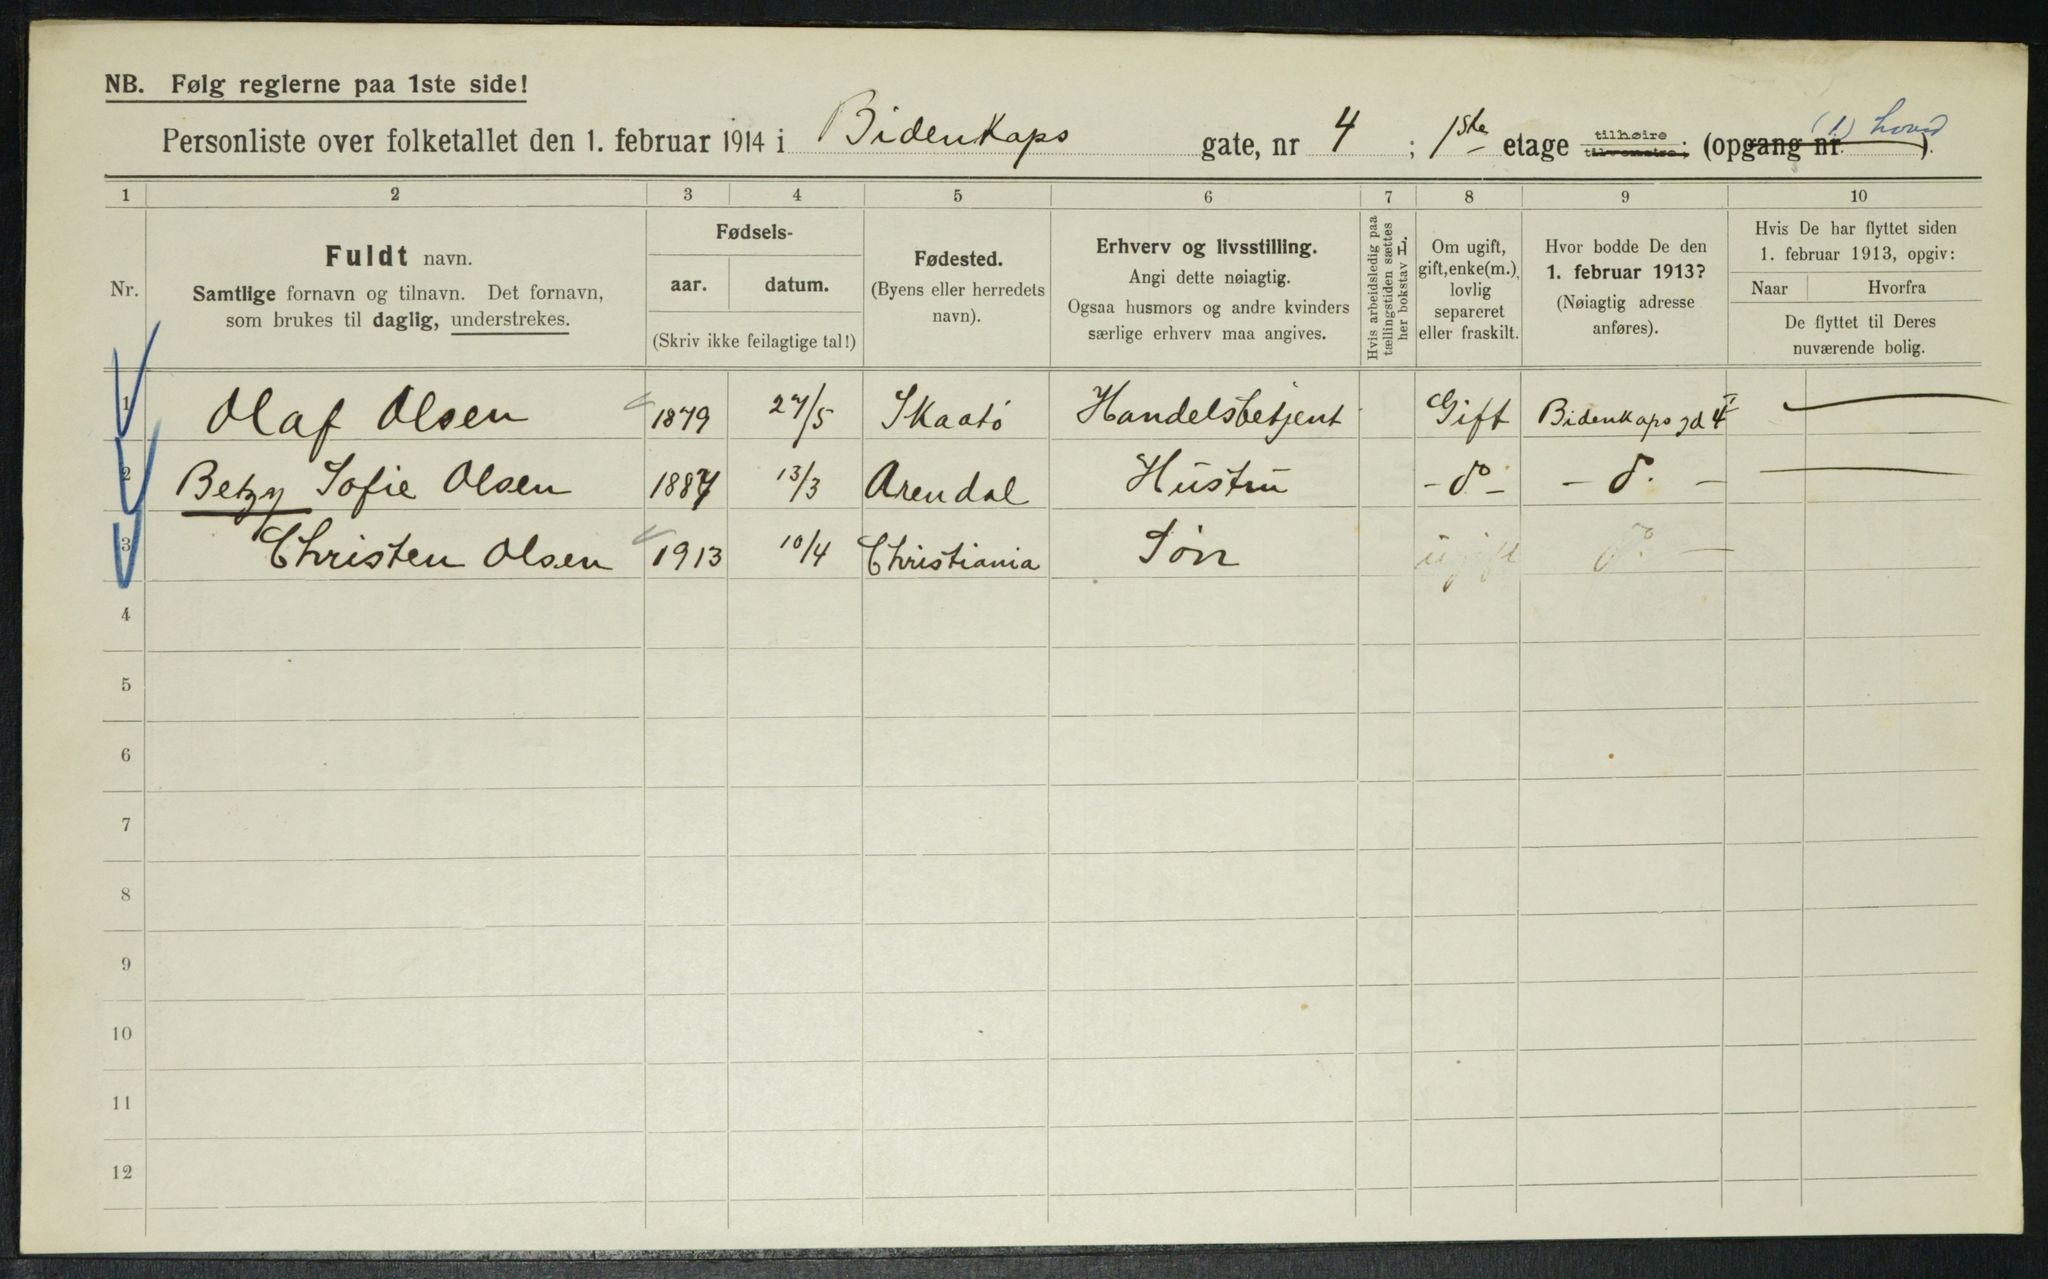 NB. Følg reglerne paa 1ste side!
Personliste over folketallet den 1. februar 1914 i Bidenkaps gate, nr 4 ; 1ste etage tilhøire tilvenstre; (opgang nr. ).
(1) hoved
1 2 3 4 5 6 7 8 9 10
Nr.
Fuldt navn.
Samtlige fornavn og tilnavn. Det fornavn,
som brukes til daglig, understrekes.
Fødsels-
aar. datum.
(Skriv ikke feilagtige tal!)
Fødested.
(Byens eller herredets
navn).
Erhverv og livsstilling.
Angi dette nøiagtig.
Ogsaa husmors og andre kvinders
særlige erhverv maa angives.
Hvis arbeidsledig paa
tællingstiden sættes
her bokstav H.
Om ugift,
gift, enke(m.),
lovlig
separeret
eller fraskilt.
Hvor bodde De den
1. februar 1913?
(Nøiagtig adresse
anføres).
Hvis De har flyttet siden
1. februar 1913, opgiv:
Naar Hvorfra
De flyttet til Deres
nuværende bolig.
1 Olaf Olsen 1879 27/5 Skaatø Handelsbetjent Gift Bidenkaps gd 4 I
2 Betzy Sofie Olsen 1887 13/3 Arendal Hustru - do - - do. -
3 Christen Olsen 1913 10/4 Christiania Søn ugift do. -
4
5
6
7
8
9
10
11
12